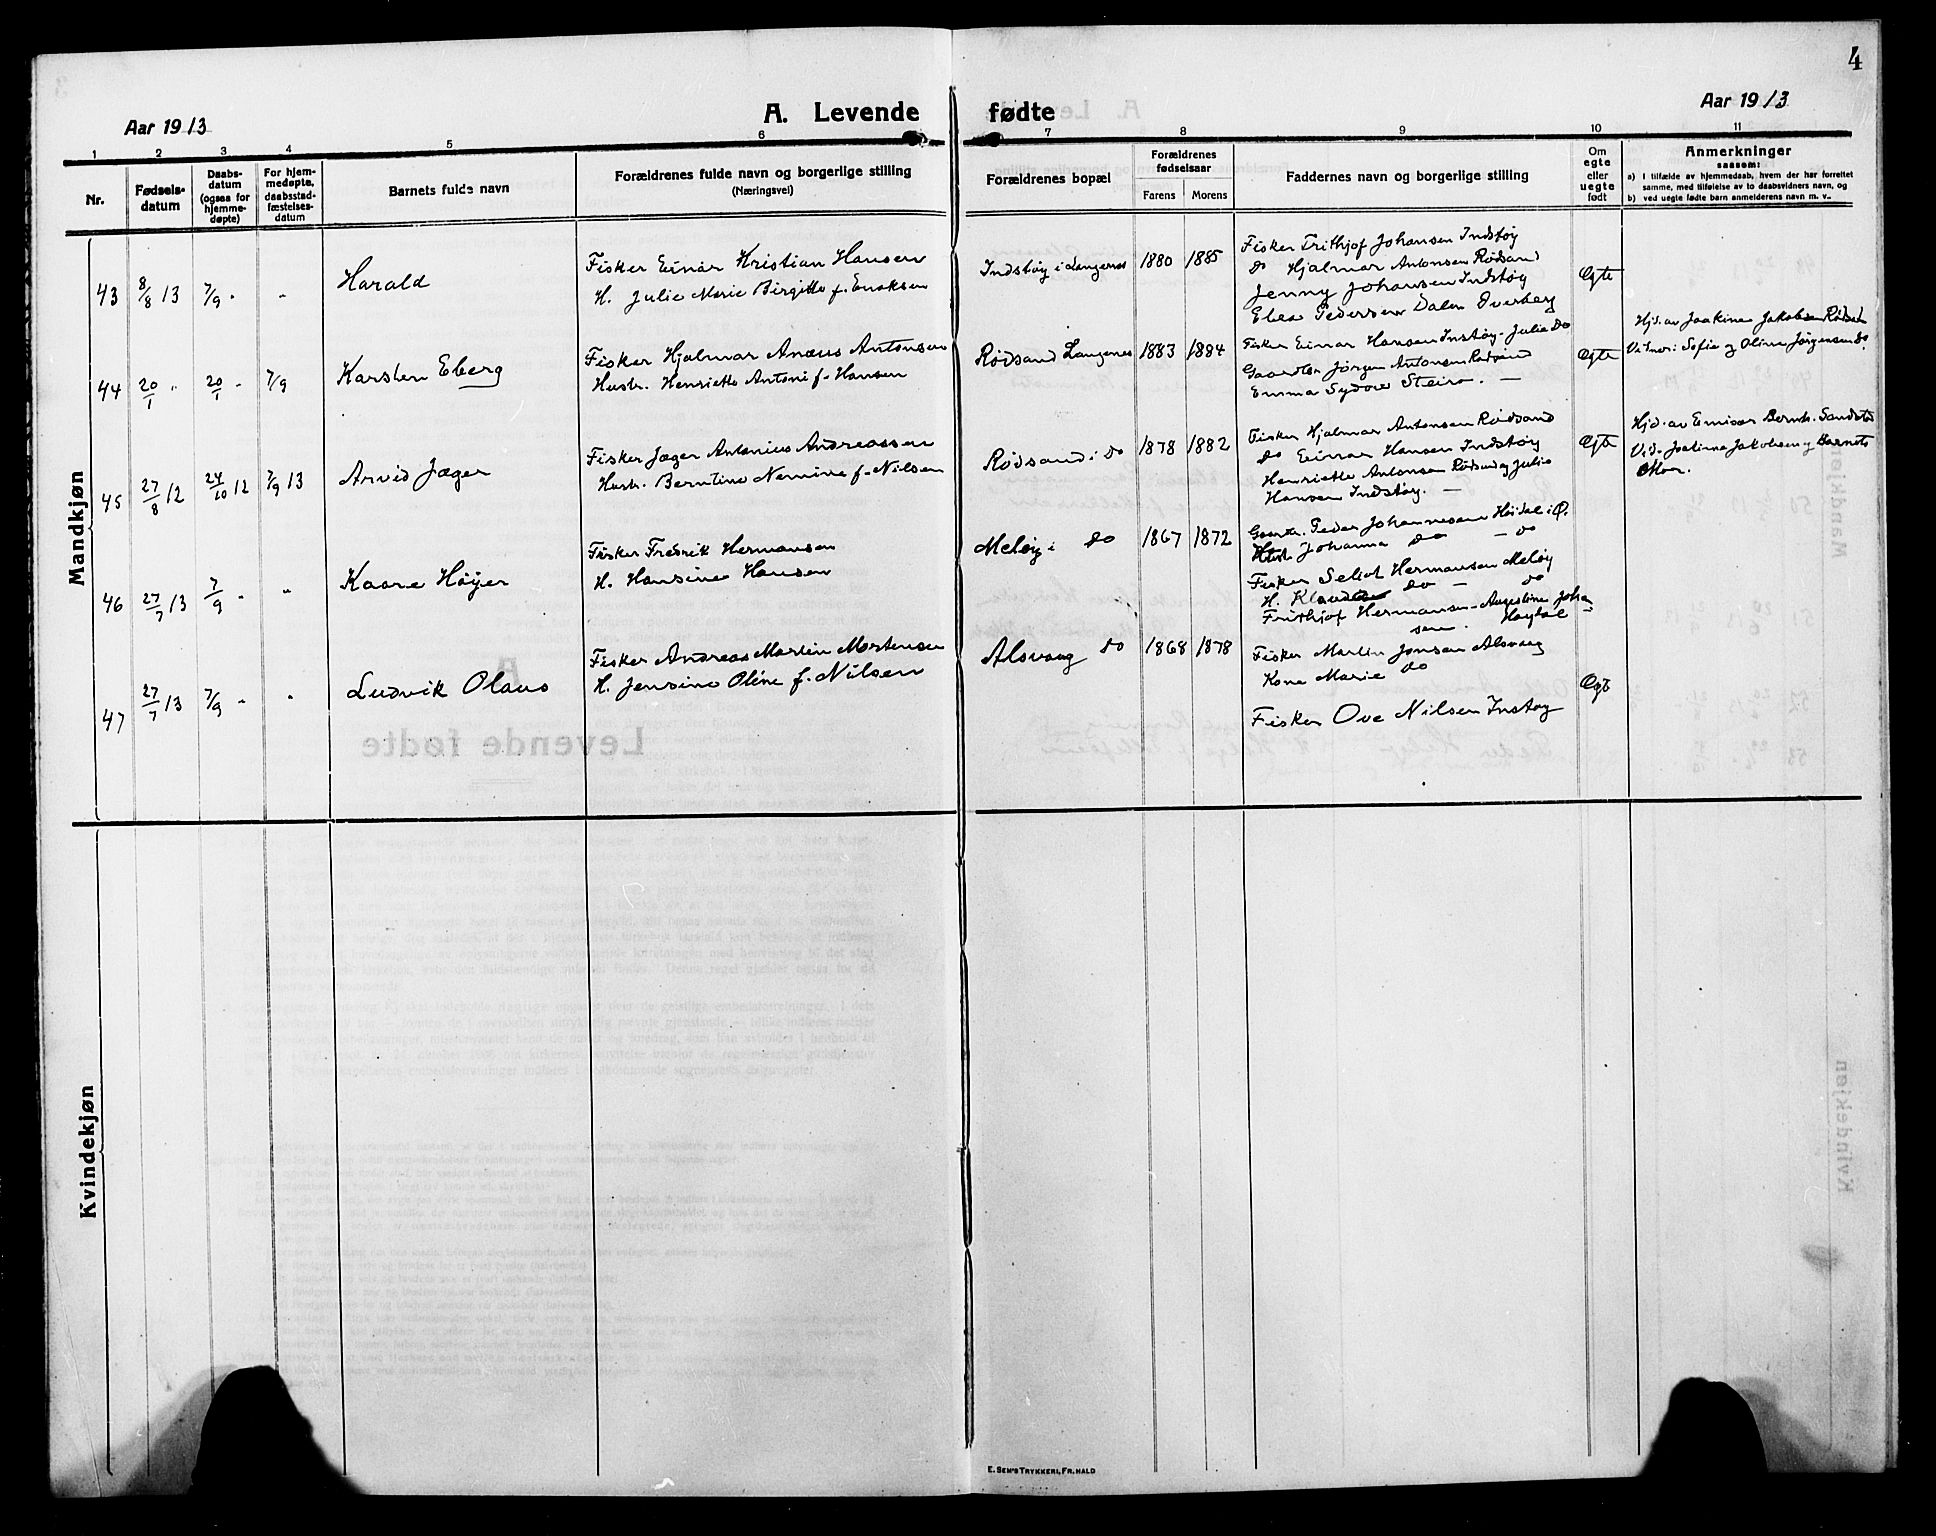 4
Aar 1913
A. Levende fødte
Aar 1913
1 2 3 4 5 6 7 8 9 10 11
Nr.
Fødsels-
datum
Daabs-
datum
(ogsaa for
hjemme-
døpte)
For hjem-
medøpte,
daabsstad-
fæstelses-
datum
Barnets fulde navn
Forældrenes fulde navn og borgerlige stilling
(Næringsvei)
Forældrenes bopæl
Forældrenes
fødselsaar
Farens Morens
Faddernes navn og borgerlige stilling
Om
egte
eller
uegte
født
Anmerkninger
saasom:
a) I tilfælde av hjemmedaab, hvem der har forrettet
samme, med tilføielse av to daabsvidners navn, og
b) ved uegte fødte barn anmelderens navn m. v..
Mandkjøn
43 8/8 13 7/9 " "
Harald
Fisker Einar Kristian Hansen
H. Julie Marie Birgitte f. Enoksen
Indstøy i Langenes
1880 1885
Fisker Frithjof Johansen Indstøy
do Hjalmar Antonsen Rødsand
Jenny Johansen Indstøy
Pedersen Dalen
Egte
44 20/1 " 20/1 " 7/9
Karsten Eberg
Fisker Hjalmar Anæus Antonsen
Hustr. Henriette Antoni f. Hansen
Rødsand Langenes
1883 1884
Fisker Einar Hansen Instøy - Julie do
Jørgen Antonsen Rødsand
Emma Sydow Steiro. —
Egte
Hjd. av Joakine Jakobsen Rødsand
Vidner: Sofie og Oline Jørgensen do.
45 27/8 12 24/10 12 7/9 13
Arvid Jæger
Fisker Jæger Antonius Andreassen
Hustr. Berntine Nemine f. Nilsen
Rødsand i do
1878 1882
Fisker Hjalmar Antonsen Rødsand
do Einar Hansen Indstøy
Henriette Antonsen Rødsand og Julie
Hansen Indstøy. —
Egte
Hjd. av Emisær Bernh. Sandstad
Vid. Joakine Jakobsen og Barnets
Mor.
46 27/7 13 7/9 " "
Kaare Høyer
Fisker Fredrik Hermansen
H. Hansine Hansen
Meløy i do
1867 1872
Peder Johannesen Høidal i Ø.
Johanna do — do
Fisker Hermansen Meløy
H. do — do
Frithjof Hermansen - Augustine Johan-
sen. Høydal
47 27/7 13 7/9 " "
Ludvik Olaus
Fisker Andreas Martin Mortensen
H. Jensine Oline f. Nilsen
Alsvaag do
1868 1878
Fisker Martin Jensen Alsvaag
Kone Marie do
Fisker Ove Nilsen Instøy
Egte
Kvindekjøn
E. SEM'S TRYKKERI, FR.HALD